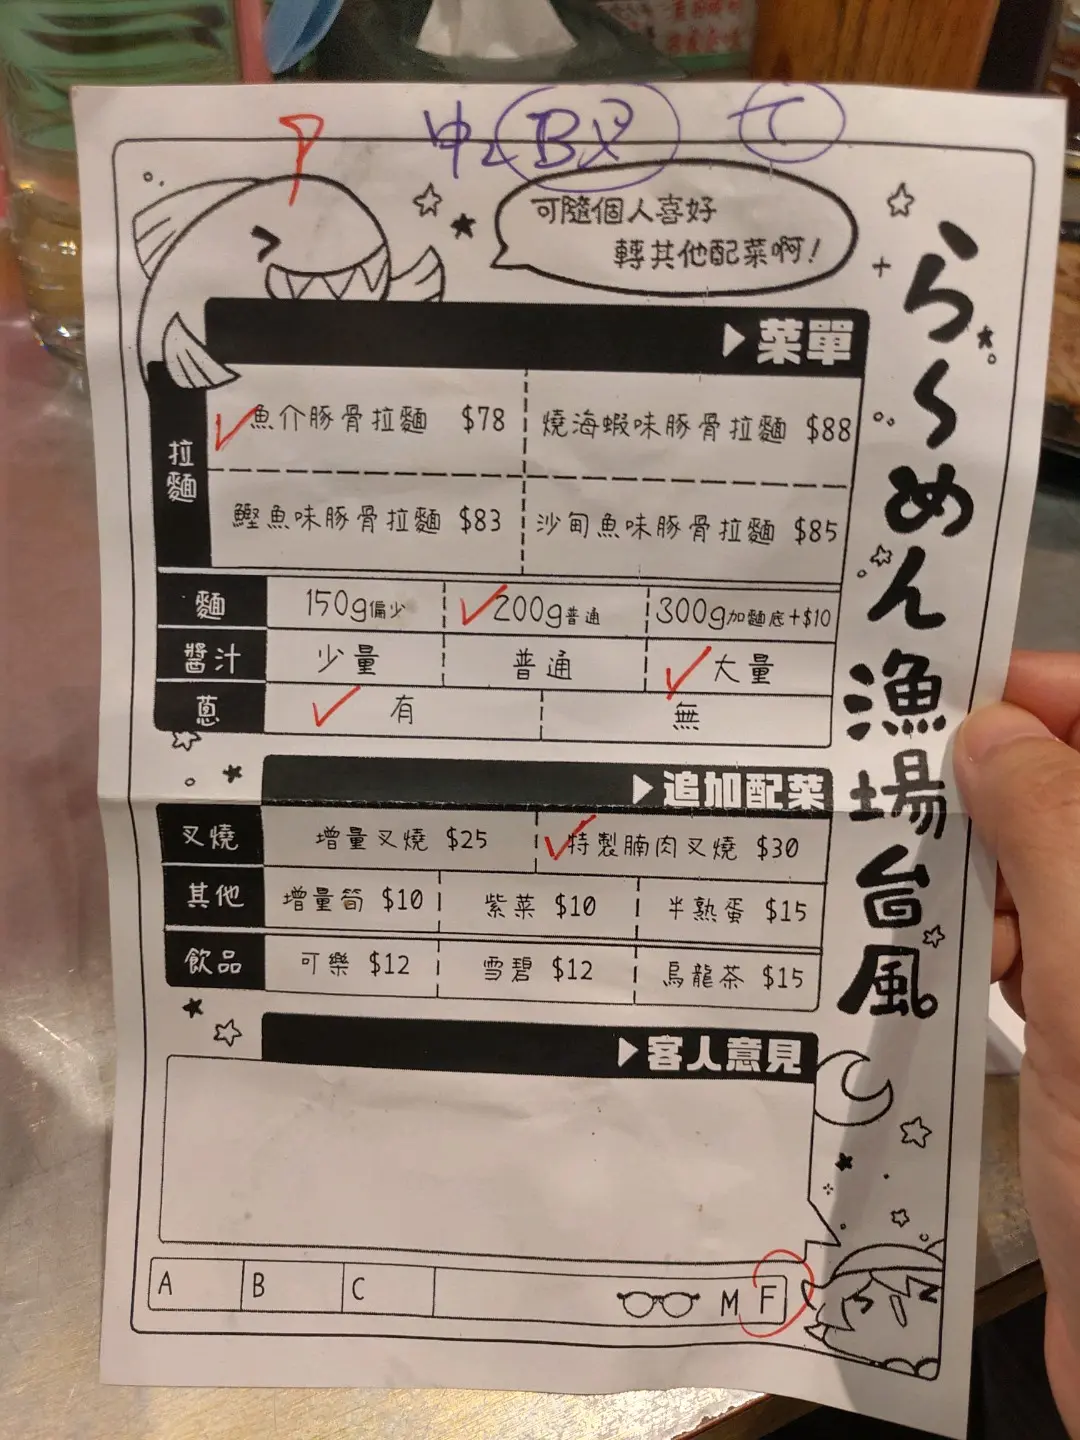 中
B
可隨個人喜好
轉其他配菜啊!
らーめん漁場台風
菜單
拉麵
魚介豚骨拉麵 $78
燒海蝦味豚骨拉麵 $88
鰹魚味豚骨拉麵 $83
沙甸魚味豚骨拉麵 $85
麵 150g偏少 200g普通 300g加麵底+$10
醬汁 少量 普通 大量
蔥 有 無
追加配菜
叉燒 增量叉燒 $25 特製腩肉叉燒 $30
其他 增量筍 $10 紫菜 $10 半熟蛋 $15
飲品 可樂 $12 雪碧 $12 烏龍茶 $15
客人意見
A B C M F